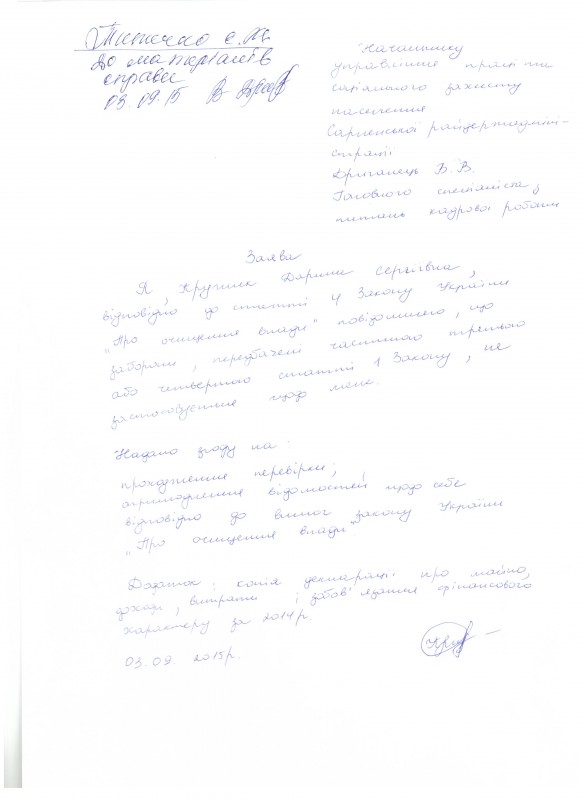 до матеріалів
справи
03.09.15
Начальнику
управління праці та
соціального захисту
населення
Сарненської райдержадміні-
страції
Дриганець В. В.
Головного спеціаліста з
питань кадрової роботи
Заява
Я, Дарина Сергіївна,
відповідно до статті 4 Закону України
„Про очищення влади" повідомляю, що
заборони, передбачені частиною третьою
або четвертою статті 1 Закону, не
застосовуються щодо мене.
Надаю згоду на:
проходження перевірки;
оприлюднення відомостей щодо себе
відповідно до вимог закону України
„Про очищення влади"
Додаток: копія декларації про майно,
доходи, витрати і зобов'язання фінансового
характеру за 2014р.
03.09. 2015р.